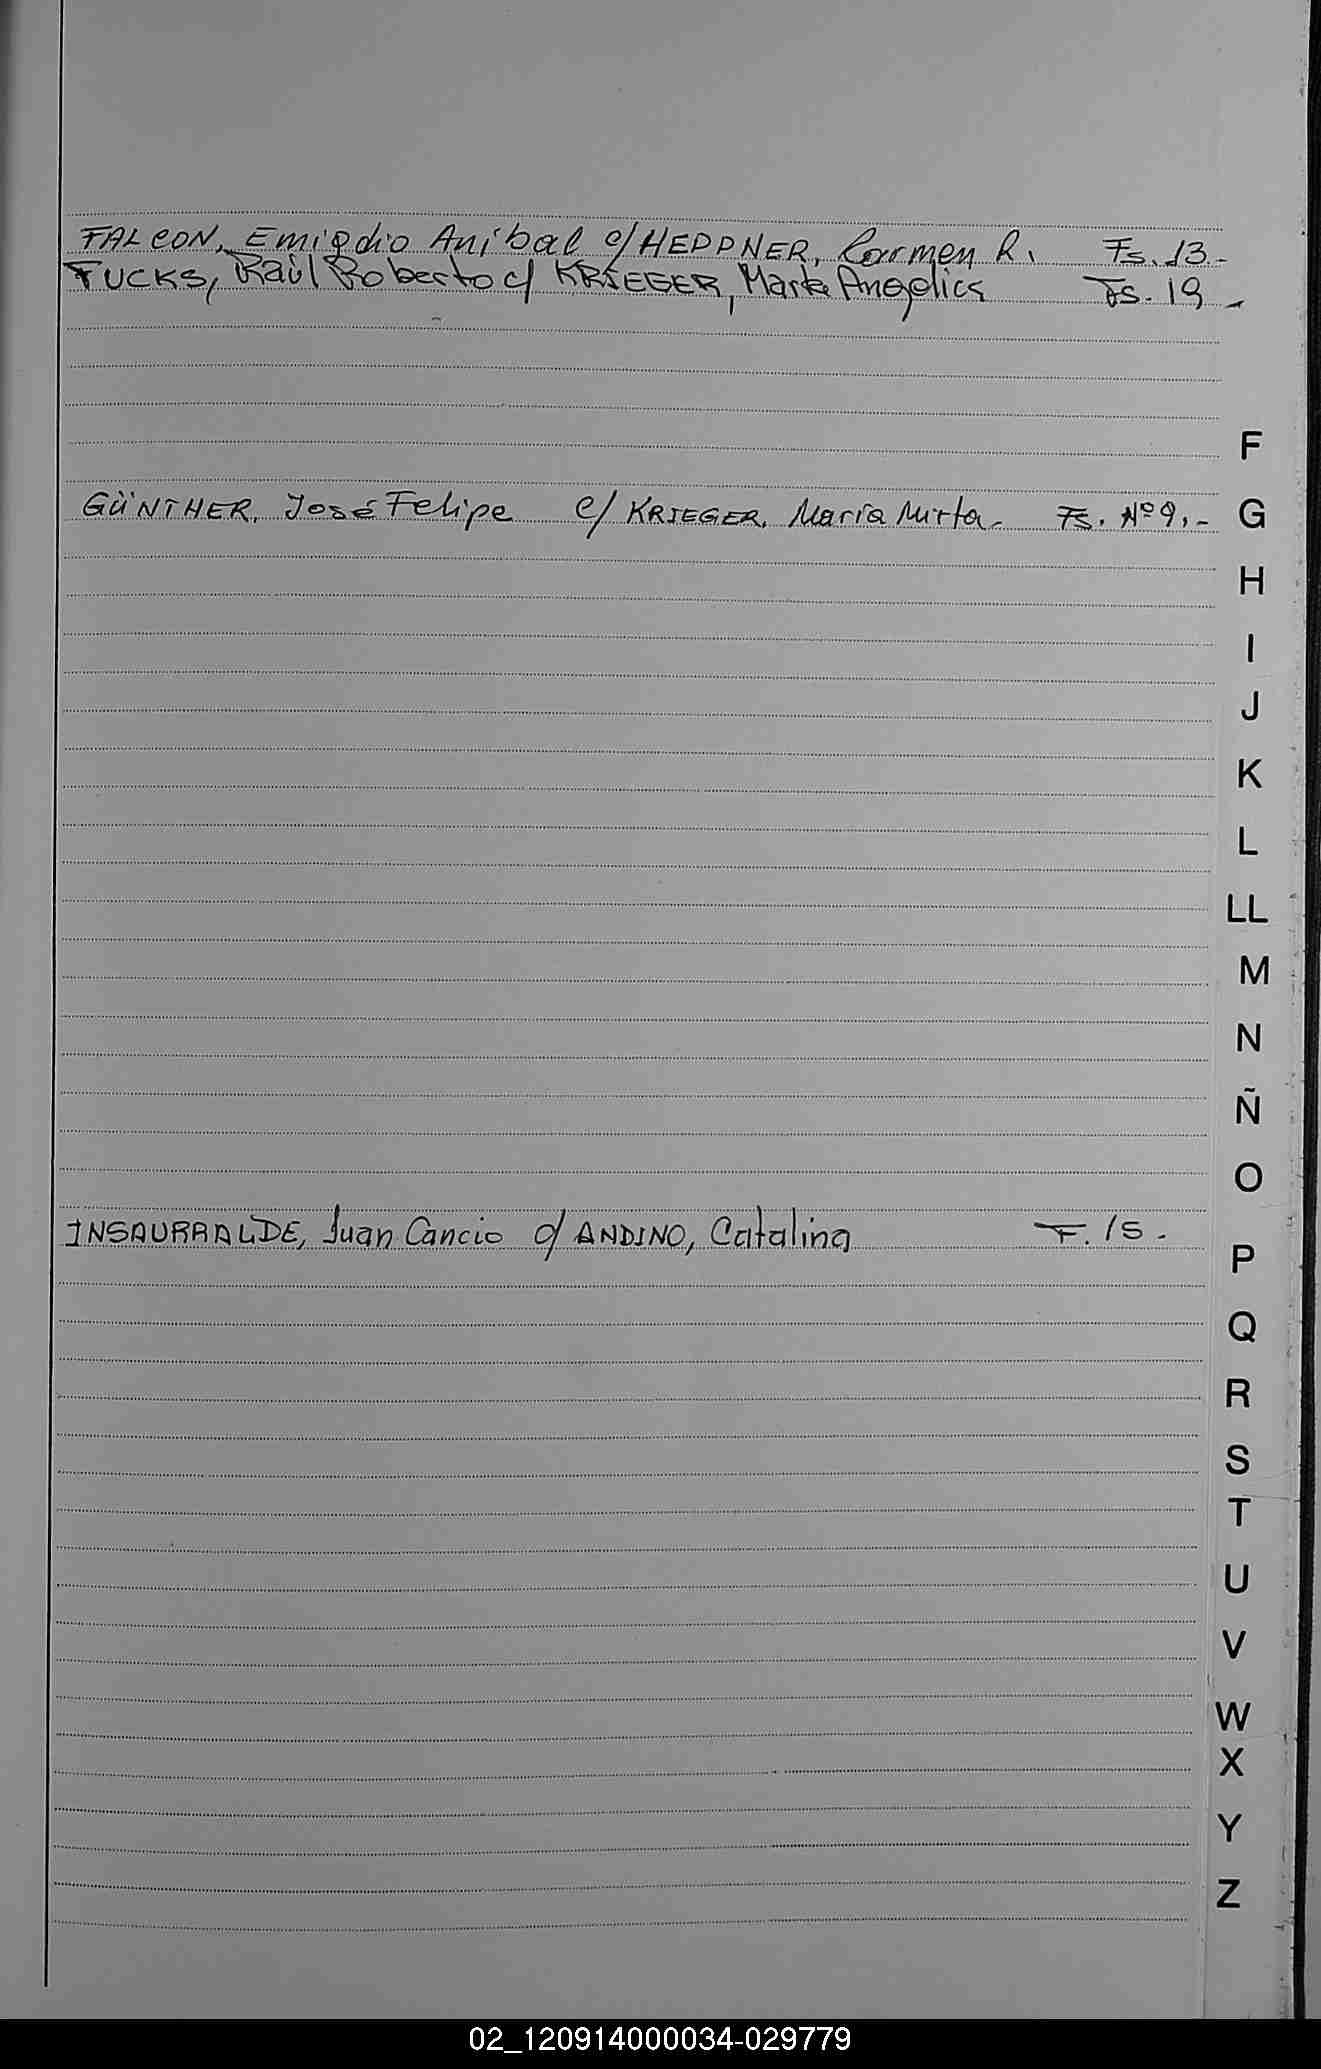 FALCON, Emigdio Aníbal c/ HEPPNER, Carmen R. Fs. 13.-
FUCKS, Raúl Roberto c/ KRIEGER, Marta Angelica Fs. 19.-
F
GÜNTHER, José Felipe c/ KRIEGER, María Mirta.- Fs. Nº 9.-
G
H
I
J
K
L
LL
M
N
Ñ
O
INSAURRALDE, Juan Cancio c/ ANDINO, Catalina F. 15.-
P
Q
R
S
T
U
V
W
X
Y
Z
02_120914000034-029779